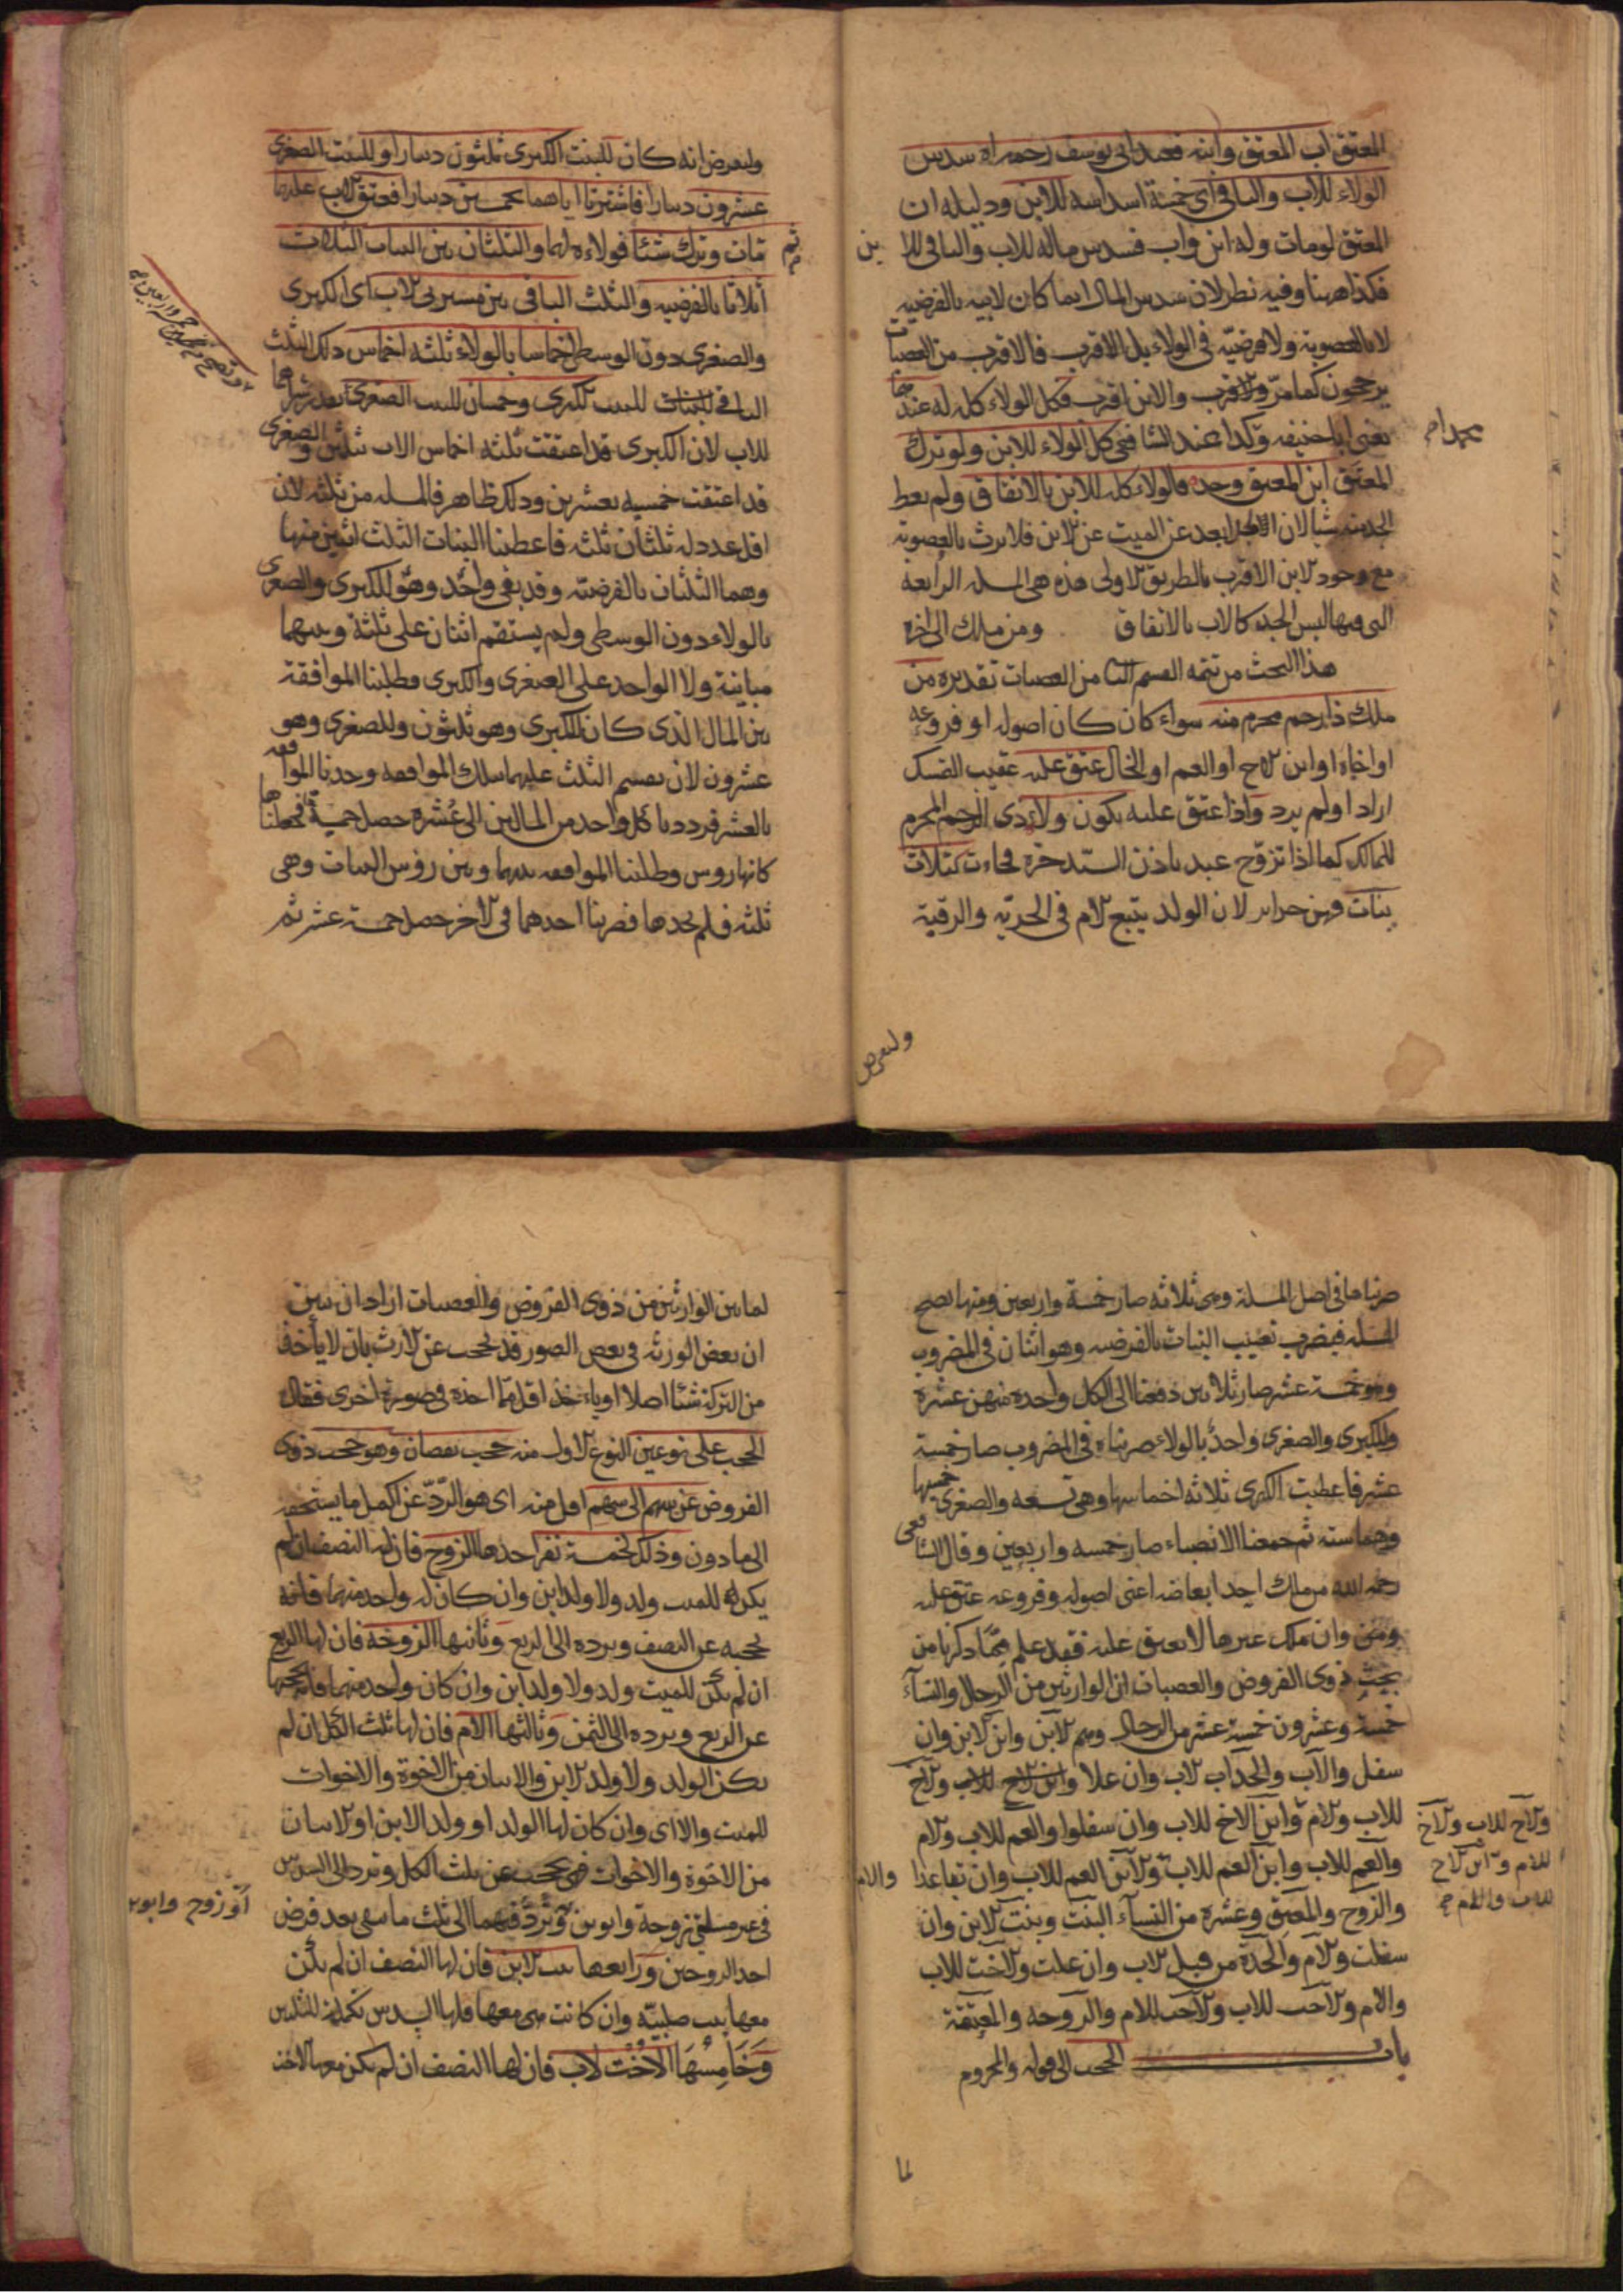 المعتق اب المعتق وابنه فعند ابى يوسف رحمه الله سدس
الولاء للاب والباقى اى خمسة اسداسه للابن ودليله ان
المعتق لو مات وله ابن واب فسدس ماله للاب والباقى للا بن
فكذا ههنا وفيه نظر لان سدس المال انما كان لابيه بالفرضيه
لا بالعصوبة ولا فرضيّه فى الولاء بل الاقرب فالاقرب من العصبات
يرجحون كما مرّ والاقرب والابن اقرب فكل الولاء كله له عندهما
يعنى ابا حنيفه وكذا عند الشافعى كل الولاء للابن ولو ترك
المعتق ابن المعتق وجده فالولاء كله للابن بالاتفاق ولم يعط
الجد منه شيا لان الجد ابعد عن الميت عن الابن فلا يرث بالعصوبة
مع وجود الابن الاقرب بالطريق الاولى هذه هى المسله الرابعة
التى فيها ليس الجد كالاب بالاتفاق ومن ملك الى اخره
هذا البحث من تتمه القسم الثا من العصبات تقديره من
ملك ذا رحم محرم منه سواء كان كان اصوله او فروعه
او اخاه او ابن الاخ او العم او الخال عتق عليه عقيب التملك
اراد او لم يرد واذا عتق عليه يكون ولاء ذى الرحم المحرم
للمالك كما اذا تزوّج عبد باذن السيد حرة فجاءت بثلاث
بنات فهن حراير لان الولد يتبع الام فى الحرية والرقية
وليفرض
وليفرض انه كان للبنت الكبرى ثلثون دينارا وللبنت الصغرى
عشرون دينارا فاشترتا اباهما بخمسين دينارا فعتق الاب عليهما
ثم مات وترك شيئا فولاءه لهما والثلثان بين البنات الثلاث
أثلاثا بالفرضيه والثلث الباقى بين مشتريتى الاب اى الكبرى
والصغرى دون الوسطى اخماسا بالولاء ثلثه اخماس ذلك الثلث
الباقى للبنات للبنت الكبرى وخمسان للبنت الصغرى بقدر شراهما
للاب لان الكبرى قد اعتقت ثلثه اخماس الاب بثلثين والصغرى
قد اعتقت خمسيه بعشرين وذلك ظاهر فالمسله من ثلثه لان
اقل عدد له ثلثان ثلثه فاعطينا البنات الثلث اثنين منها
وهما الثلثان بالفرضيه وقد بقى واحد وهو للكبرى والصغرى
بالولاء دون الوسطى ولم يستقم اثنان على ثلثة وبينهما
مباينة ولا الواحد على الصغرى والكبرى فطلبنا الموافقة
بين المال الذى كان للكبرى وهو ثلثون وللصغرى وهو
عشرون لان تقسم الثلث عليهما بتلك الموافقه وجدنا الموافقه
بالعشر فرددنا كل واحد من المالين الى عُشره حصل خمسة فجعلناها
كانها روس وطلبنا الموافقه بينهما وبين رؤس البنات وهى
ثلثه فلم نجدها فضربنا احدهما فى الاخر حصل خمسة عشر ثم
ضربناها فى اصل المسلة وهى ثلاثه صار خمسة واربعين ومنها تصح
المسله فيضرب نصيب البنات بالفرضيه وهو اثنان فى المضروب
وهو خمسة عشر صار ثلاثين دفعنا الى كل واحدة منهن عشرة
وللكبرى والصغرى واحدٌ بالولاء ضربناه فى المضروب صار خمسة
عشر فاعطيت الكبرى ثلاثه اخماسها وهى تسعه والصغرى خمسيها
وهما سته ثم جمعنا الانصباء صار خمسه واربعين وقال الشافعى
رحمه الله من ملك احد ابعاضه اعنى اصوله وفروعه عتق عليه
ومن وان ملك غيرها لا يعتق عليه فقد علم ممّا ذكرنا من
بحث ذوى الفروض والعصبات ان الوارثين من الرجال والنسآء
خمسة وعشرون خمسة عشر من الرجال وهم الابن وابن الابن وان
سفل والآب والجد اب الاب وان علا وابن الاخ للاب والآخ
للاب والام وآبن الاخ للاب وان سفلوا والعم للاب والام
والعم للاب وآبن العم للاب والآبن العم للاب وان تباعدا والام
والآخ للاب والآخ
للام وآبن الاخ
للاب والام
والزوج والمعتق وعشرة من النسآء البنت وبنت الابن وان
سفلت والام والجدة من قبل الاب وان علت والاخت للاب
والام والاخت للاب والاخت للام والزوجه والمعتقة
باب الحجب الى قوله والمحروم
لما
لما بين الوارثين من ذوى الفروض والعصبات اراد ان يبين
ان بعض الورثه فى بعض الصور قد يحجب عن الارث بان لا يأخذ
من التركة شيئا اصلا او ياءخذ اقل مما اخذه فى صورة اخرى فقال
الحجب على نوعين النوع الاول منه حجب نقصان وهو حجب ذوى
الفروض عن سهم الى سهم اقل منه اى هو الرّدّ عن اكمل ما يستحقه
الى ما دون وذلك لخمسة نفر احدها الزوج فان له النصف ان لم
يكن له للميت ولد ولا ولد ابن وان كان له واحد منهما فانه
يحجبه عن النصف ويرده الى الربع وثانيها الزوجة فان لها الربع
ان لم يكن للميت ولد ولا ولد ابن وان كان واحد منهما فانه يحجبها
عن الربع ويرده الى الثمن وثالثها الام فان لها ثلث الكل ان لم
يكن الولد ولا ولد الابن والاثنان من الاخوة والاخوات
للميت والا اى وان كان لها الولد او ولد الابن او الاثنان
من الاخوة والاخوات فهى يحجب عن ثلث الكل وترد الى السدس
فى غير مسلتى زوجة وابوين وتردّ فيهما الى ثلث ما بقى بعد فرض
آو زوج وابوين
احد الزوجين ورابعها بنت الابن فان لها النصف ان لم يكن
معها بنت صلبيّه وان كانت هى معها فلها السدس تكملة للثلثين
وَخَامِسُهَا الأُخْت لاب فان لها النصف ان لم يكن معها الاخت